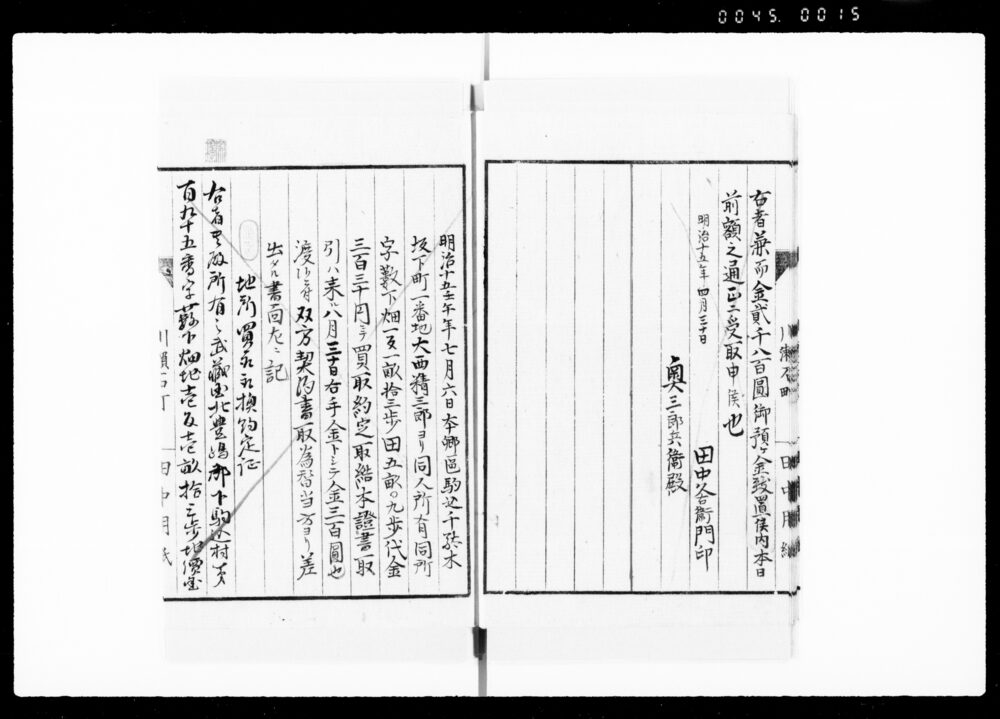 0045. 0015
右者兼而金貳千八百圓御預ヶ金致置候内本日
前額之通正ニ受取申候也
明治十五年四月三十日
田中久右衛門印
奥三郎兵衛殿
明治十五壬午年七月六日本郷區駒込千駄木
坂下町一番地大西精三郎ヨリ同人所有同所
字藪下畑一反一畝拾三歩田五畝〇九歩代金
三百三十円ニテ買取約定取結本證書取
引ハ来ル八月三十日右手金トシテ金三百圓也
渡シ有双方契約書取為替当方ヨリ差
出タル書面左ニ記
地所買求約定証
右者貴殿所有之武藏国北豊嶋郡下駒込村
百九十五番字藪下畑地壱反壱畝拾三歩地價金
川瀬石町 田中用紙